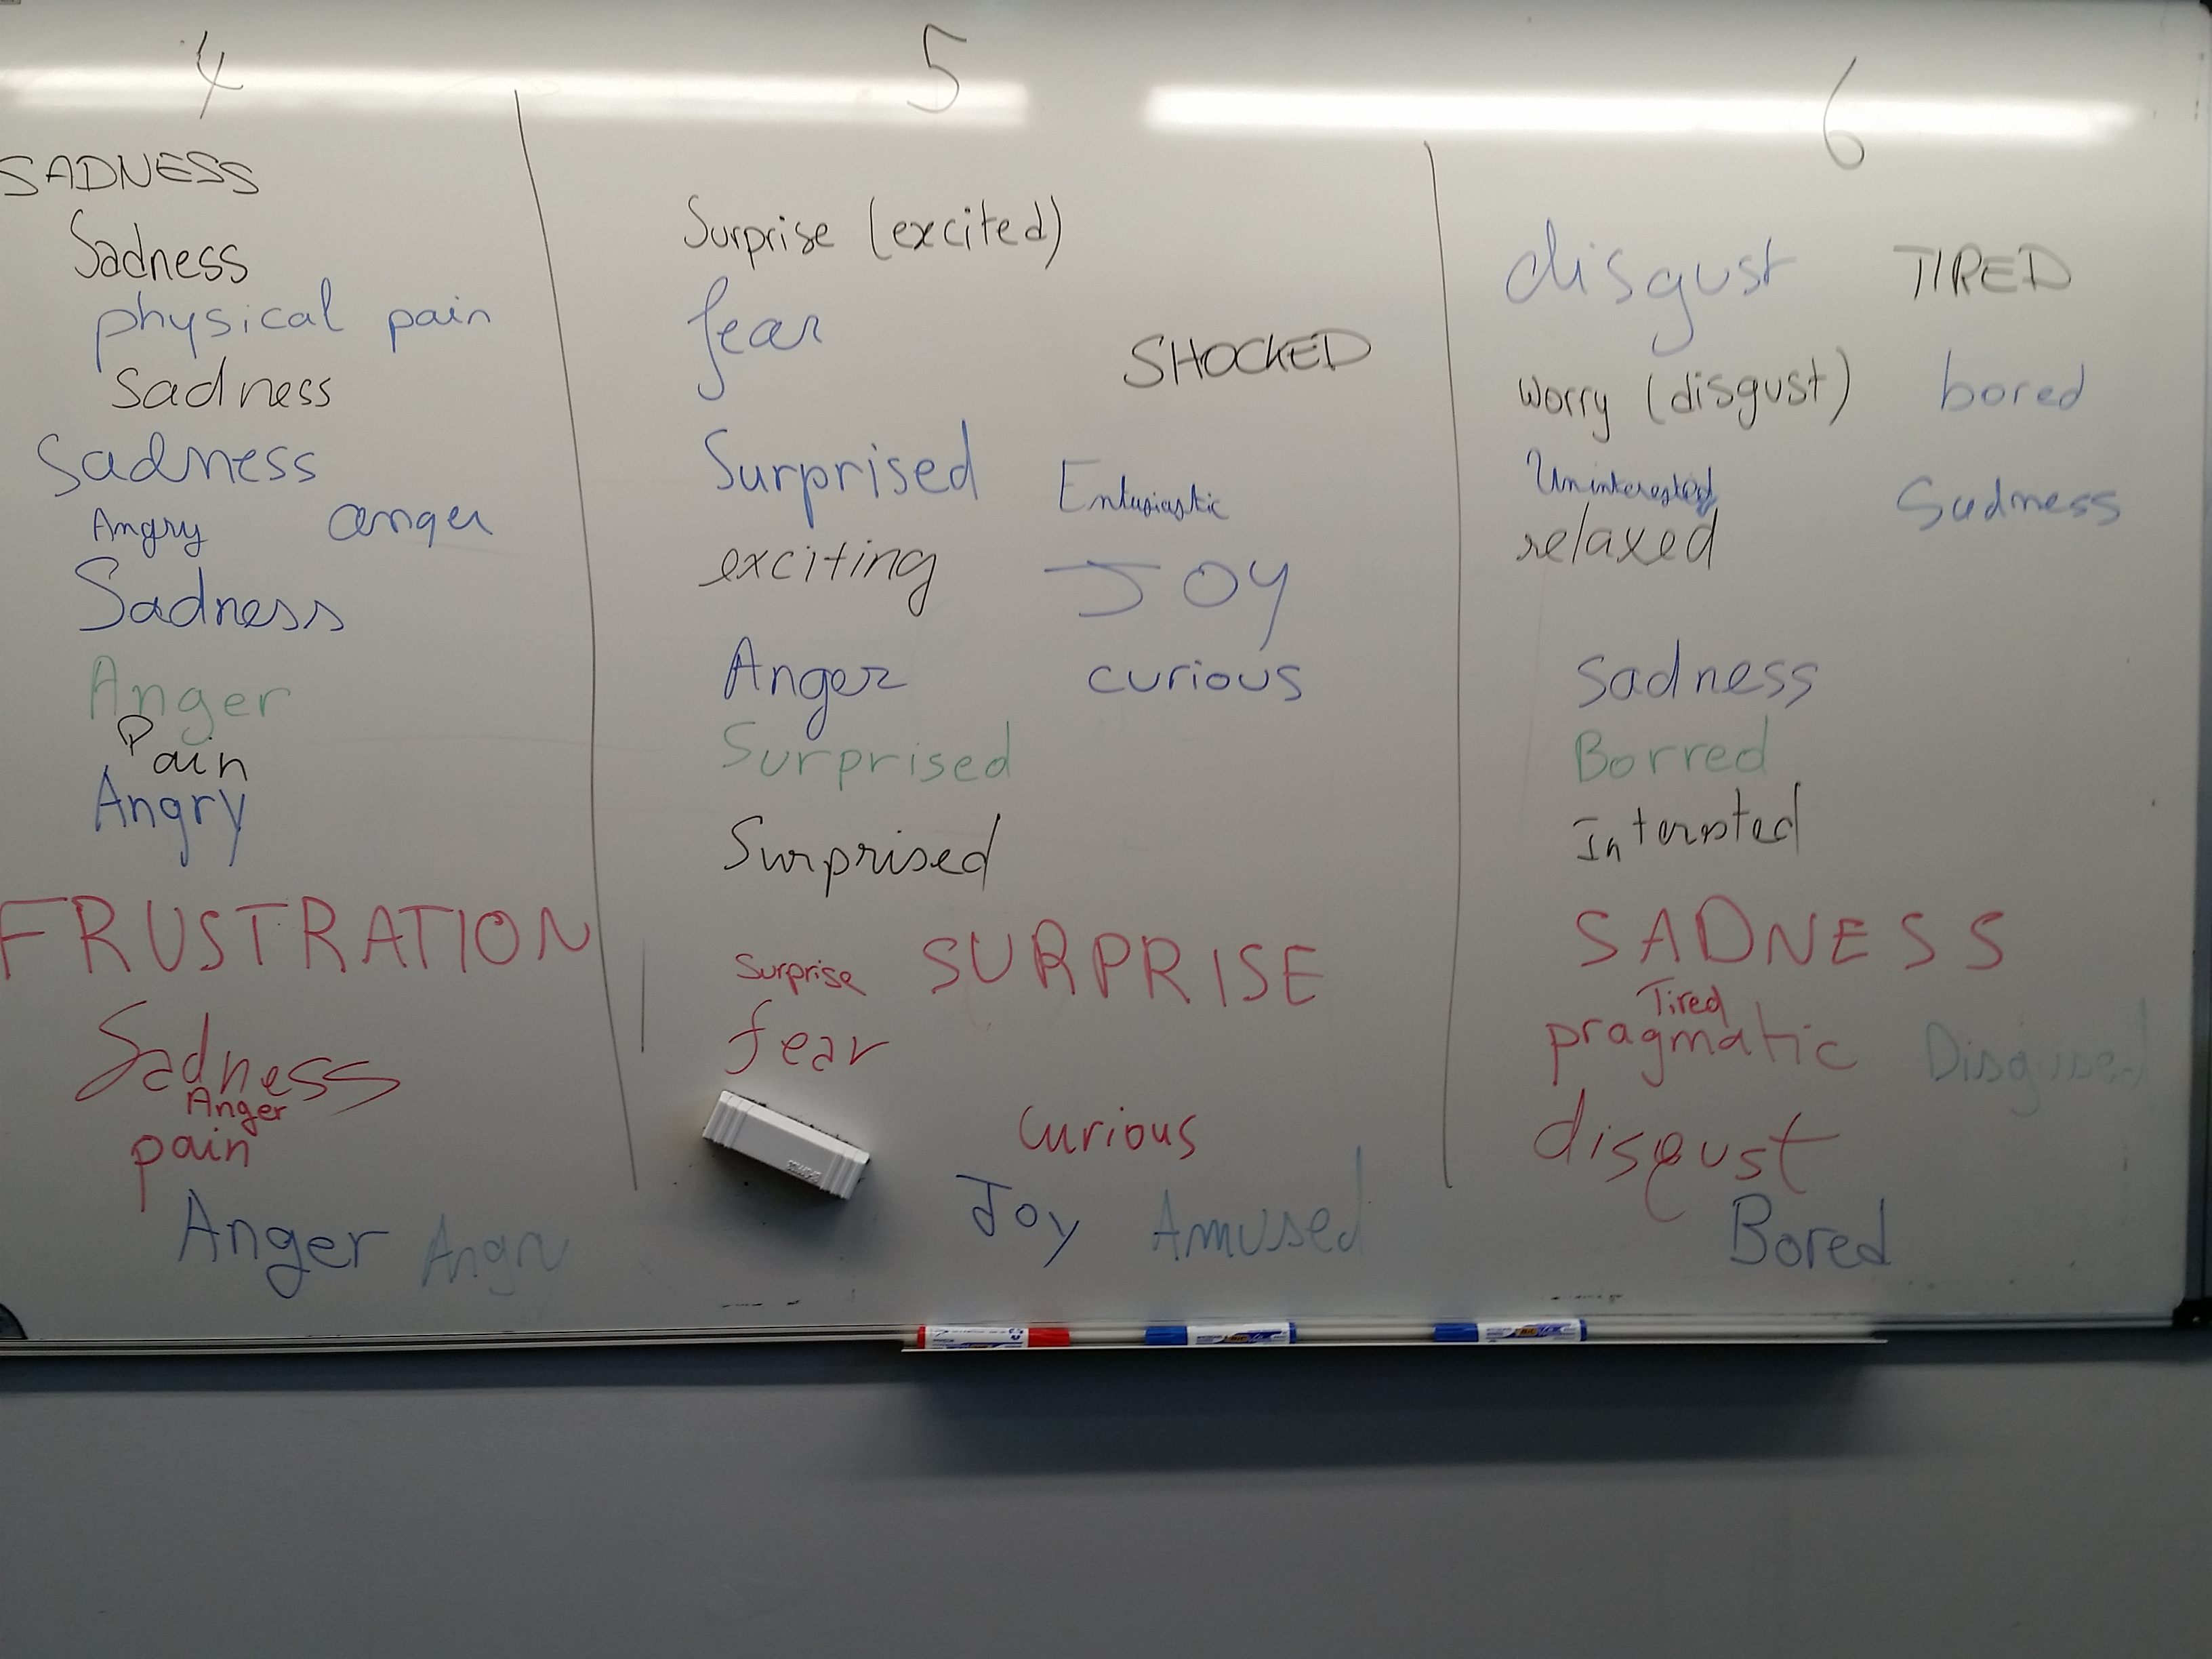 4
SADNESS
Sadness
physical pain
Sadness
Sadness
Angry anger
Sadness
Anger
Pain
Angry
FRUSTRATION
Sadness
Anger
pain
Anger Angry
5
Surprise (excited)
fear
SHOCKED
Surprised Entusiastic
exciting JOY
Anger curious
Surprised
Surprised
Surprise SURPRISE
fear
Curious
Joy Amused
6
disgust TIRED
Worry (disgust) bored
Uninterested Sadness
relaxed
Sadness
Borred
SADNESS
Tired
pragmatic
disgust
Bored